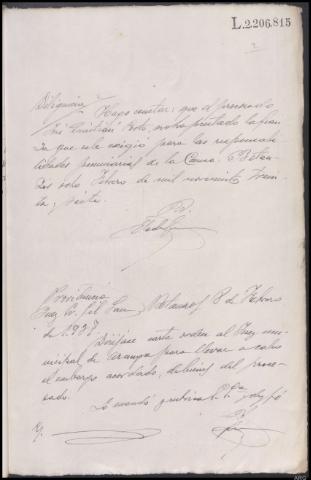 L.2.206.815
2
Diligencia / Hago constar: que el procesado
José Cristián Soto, no ha prestado la fian
za que se le exigió para las responsabi
lidades pecuniarias de la Causa. Betan
zos ocho Febrero de mil novecientos trein
ta y siete.
Providencia
Juez Sr. Gil San Betanzos 8 de Febrero
de 1.937.
Diríjase carta orden al Juez mu
nicipal de Aranga para llevar a cabo
el embargo acordado, de bienes del proce
sado.
Lo mandó y rubrica S.Sª doy fé